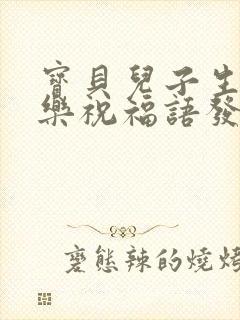 寶貝兒子生
樂祝福語發
褒態辣的燒烤